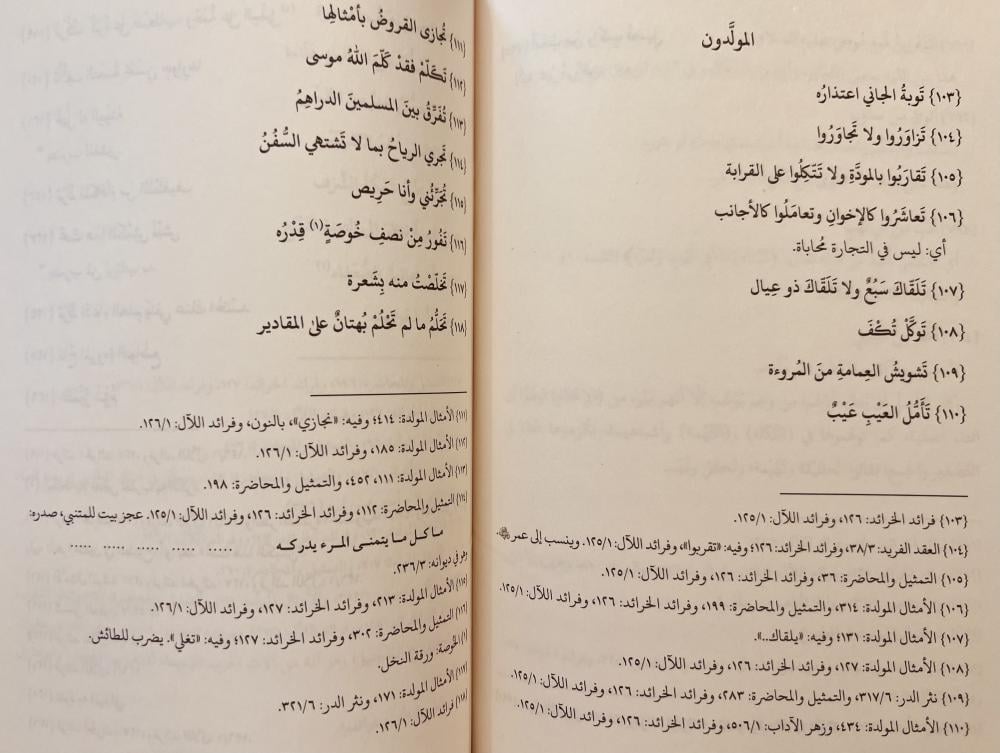 المولَّدون
{١٠٣} تَوبةُ الجاني اعتذارُه
{١٠٤} تَزاوَرُوا ولا تَجَاوَرُوا
{١٠٥} تَقارَبُوا بالمودَّةِ ولا تَتَكِلُوا على القرابة
{١٠٦} تَعاشَرُوا كالإخوانِ وتعامَلُوا كالأجانب
أي: ليس في التجارة مُحاباة.
{١٠٧} تَلَقَاكَ سَبُعٌ ولا تَلَقَاكَ ذو عِيال
{١٠٨} تَوكَّلْ تُكْفَ
{١٠٩} تَشويشُ العِمامةِ منَ المُروءة
{١١٠} تَأمُّلُ العَيْبِ عَيْبٌ
{١٠٣} فرائد الخرائد: ١٢٦، وفرائد اللآل: ١٢٥/١.
{١٠٤} العقد الفريد: ٣٨/٣، وفرائد الخرائد: ١٢٦؛ وفيه: «تقربوا»، وفرائد اللآل: ١٢٥/١. وينسب إلى عمر
{١٠٥} التمثيل والمحاضرة: ٣٦، وفرائد الخرائد: ١٢٦، وفرائد اللآل: ١٢٥/١.
{١٠٦} الأمثال المولدة: ٣١٤، والتمثيل والمحاضرة: ١٩٩، وفرائد الخرائد: ١٢٦، وفرائد اللآل: ١٢٥/١.
{١٠٧} الأمثال المولدة: ١٣١؛ وفيه: «يلقاك..».
{١٠٨} الأمثال المولدة: ١٢٧، وفرائد الخرائد: ١٢٦، وفرائد اللآل: ١٢٥/١.
{١٠٩} نثر الدر: ٣١٧/٦، والتمثيل والمحاضرة: ٢٨٣، وفرائد الخرائد: ١٢٦، وفرائد اللآل: ١٢٥/١.
{١١٠} الأمثال المولدة: ٤٣٤، وزهر الآداب: ٥٠٦/١، وفرائد الخرائد: ١٢٦، وفرائد اللآل: ١٢٥/١.
{١١١} تُجازى القروضُ بأمْثالِها
{١١٢} تَكلَّمْ فقدْ كَلَّمَ اللهُ موسى
{١١٣} تُفَرِّقُ بينَ المسلمينَ الدراهِمُ
{١١٤} تَجري الرياحُ بما لا تَشتهي السُّفُنُ
{١١٥} تُجَرِّئُني وأنا حَرِيص
{١١٦} تَفُورُ مِنْ نصفِ خُوصَةٍ (١) قِدْرُه
{١١٧} تَخلّصْتُ منه بِشَعرة
{١١٨} تَحَلُّمُ ما لم تَحْلُمْ بُهتانٌ على المقادير
{١١١} الأمثال المولدة: ٤١٤؛ وفيه: «نجازي»، بالنون، وفرائد اللآل: ١٢٦/١.
{١١٢} الأمثال المولدة: ١٨٥، وفرائد اللآل: ١٢٦/١.
{١١٣} الأمثال المولدة: ١١١، ٤٥٢، والتمثيل والمحاضرة: ١٩٨.
{١١٤} التمثيل والمحاضرة: ١١٢، وفرائد الخرائد: ١٢٦، وفرائد اللآل: ١٢٥/١. عجز بيت للمتنبي، صدره:
ما كل ما يتمنى المرء يدركه ..... ..... ..... ..... .....
وهو في ديوانه: ٢٣٦/٣.
{١١٥} الأمثال المولدة: ٢١٣، وفرائد الخرائد: ١٢٧، وفرائد اللآل: ١٢٦/١.
{١١٦} التمثيل والمحاضرة: ٣٠٢، وفرائد الخرائد: ١٢٧؛ وفيه: «تغلي». يضرب للطائش.
(١) الخوصة: ورقة النخل.
{١١٧} الأمثال المولدة: ١٧١، ونثر الدر: ٣٢١/٦.
{١١٨} فرائد اللآل: ١٢٦/١.